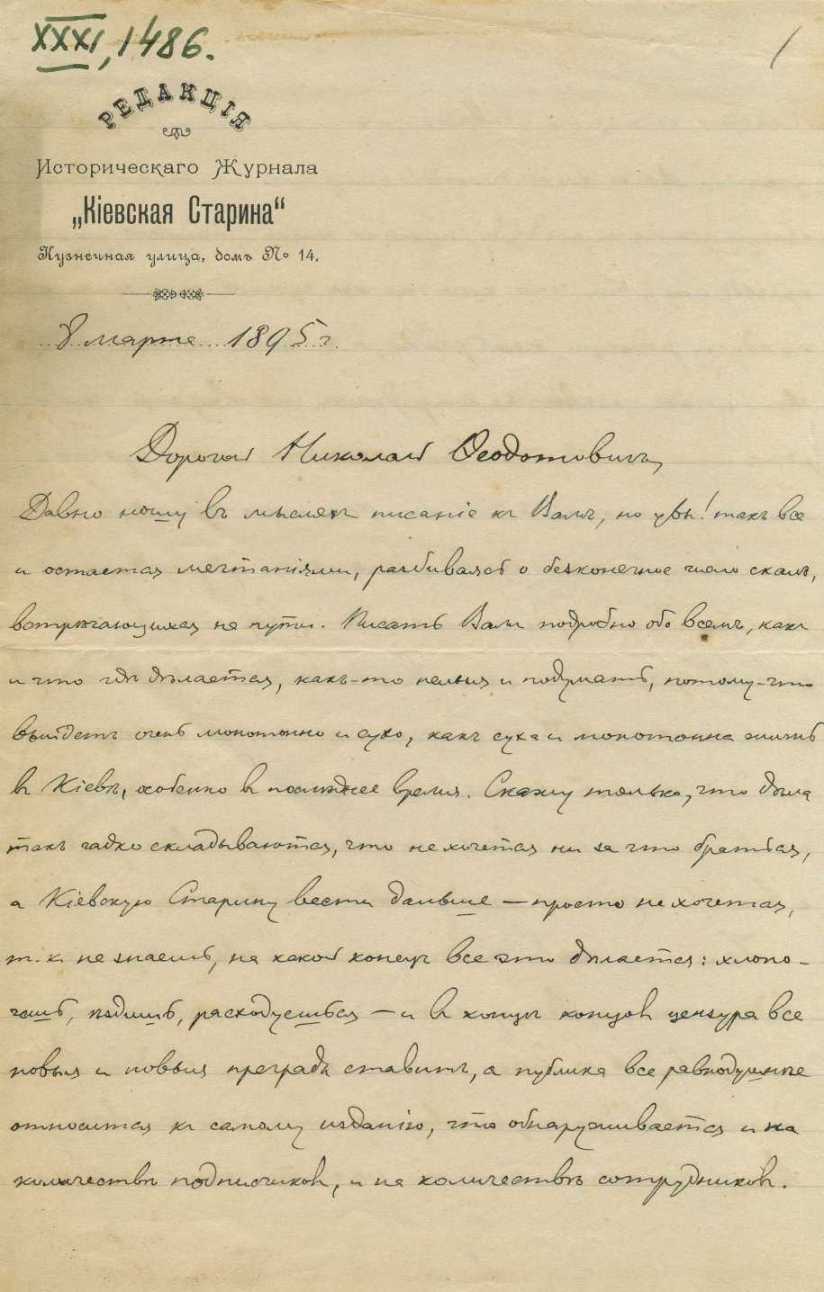 XXXI, 1486.
РЕДАКЦІЯ
Историческаго Журнала
„Кіевская Старина“
Кузнечная улица, домъ № 14.
8 марта 1895 г.
Дорогой Николай Ѳеодотовичъ,
Давно ношу въ мысляхъ писаніе къ Вамъ, но увы! такъ все
и остается мечтаніями, разбиваясь о безконечное число скалъ,
встрѣчающихся на пути. Писать Вамъ подробно обо всемъ, какъ
и что гдѣ дѣлается, какъ-то нельзя и подумать, потому-что
выйдетъ очень монотонно и сухо, какъ суха и монотонна жизнь
въ Кіевѣ, особенно въ послѣднее время. Скажу только, что дѣла
такъ гадко складываются, что не хочется ни за что браться,
а Кіевскую Старину вести дальше — просто не хочется,
т. к. не знаешь, на какой конецъ все это дѣлается: хлопо-
чешь, ѣздишь, расходуешься — и въ концѣ концовъ цензура все
новыя и новыя преграды ставитъ, а публика все равнодушнѣе
относится къ самому изданію, что обнаруживается и на
количествѣ подписчиковъ, и на количествѣ сотрудниковъ.